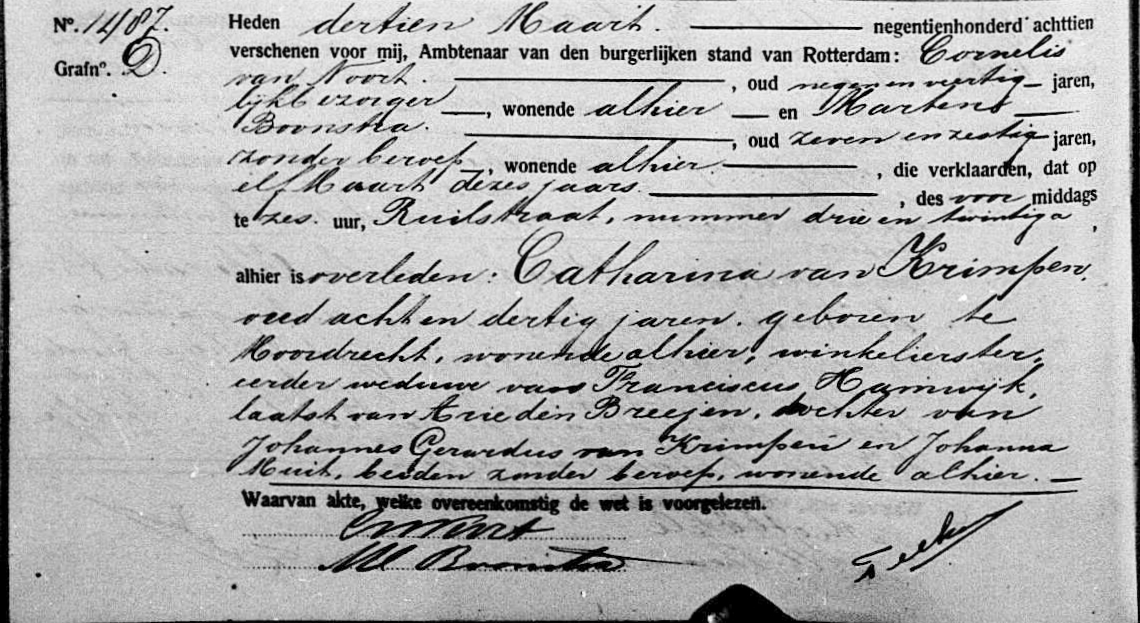 No. 1487.
Grafno. D.
Heden dertien Maart. negentienhonderd achttien
verschenen voor mij, Ambtenaar van den burgerlijken stand van Rotterdam: Cornelis
van Noort. , oud negen en veertig jaren,
lijkbezorger , wonende alhier en Martens
Boonstra. , oud zeven en zestig jaren,
zonder beroep , wonende alhier. , die verklaarden, dat op
elf Maart dezes jaars , des voor middags
te zes. uur, Ruilstraat, nummer drie en twintig a ,
alhier is overleden: Catharina van Krimpen,
oud acht en dertig jaren. geboren te
Moordrecht, wonende alhier, winkelierster,
eerder weduwe van Franciscus Hamwijk,
laatst van Arie den Breejen, dochter van
Johannes Gerardus van Krimpen en Johanna
Muit, beiden zonder beroep, wonende alhier.
Waarvan akte, welke overeenkomstig de wet is voorgelezen.
CvNoort
M Boonstra